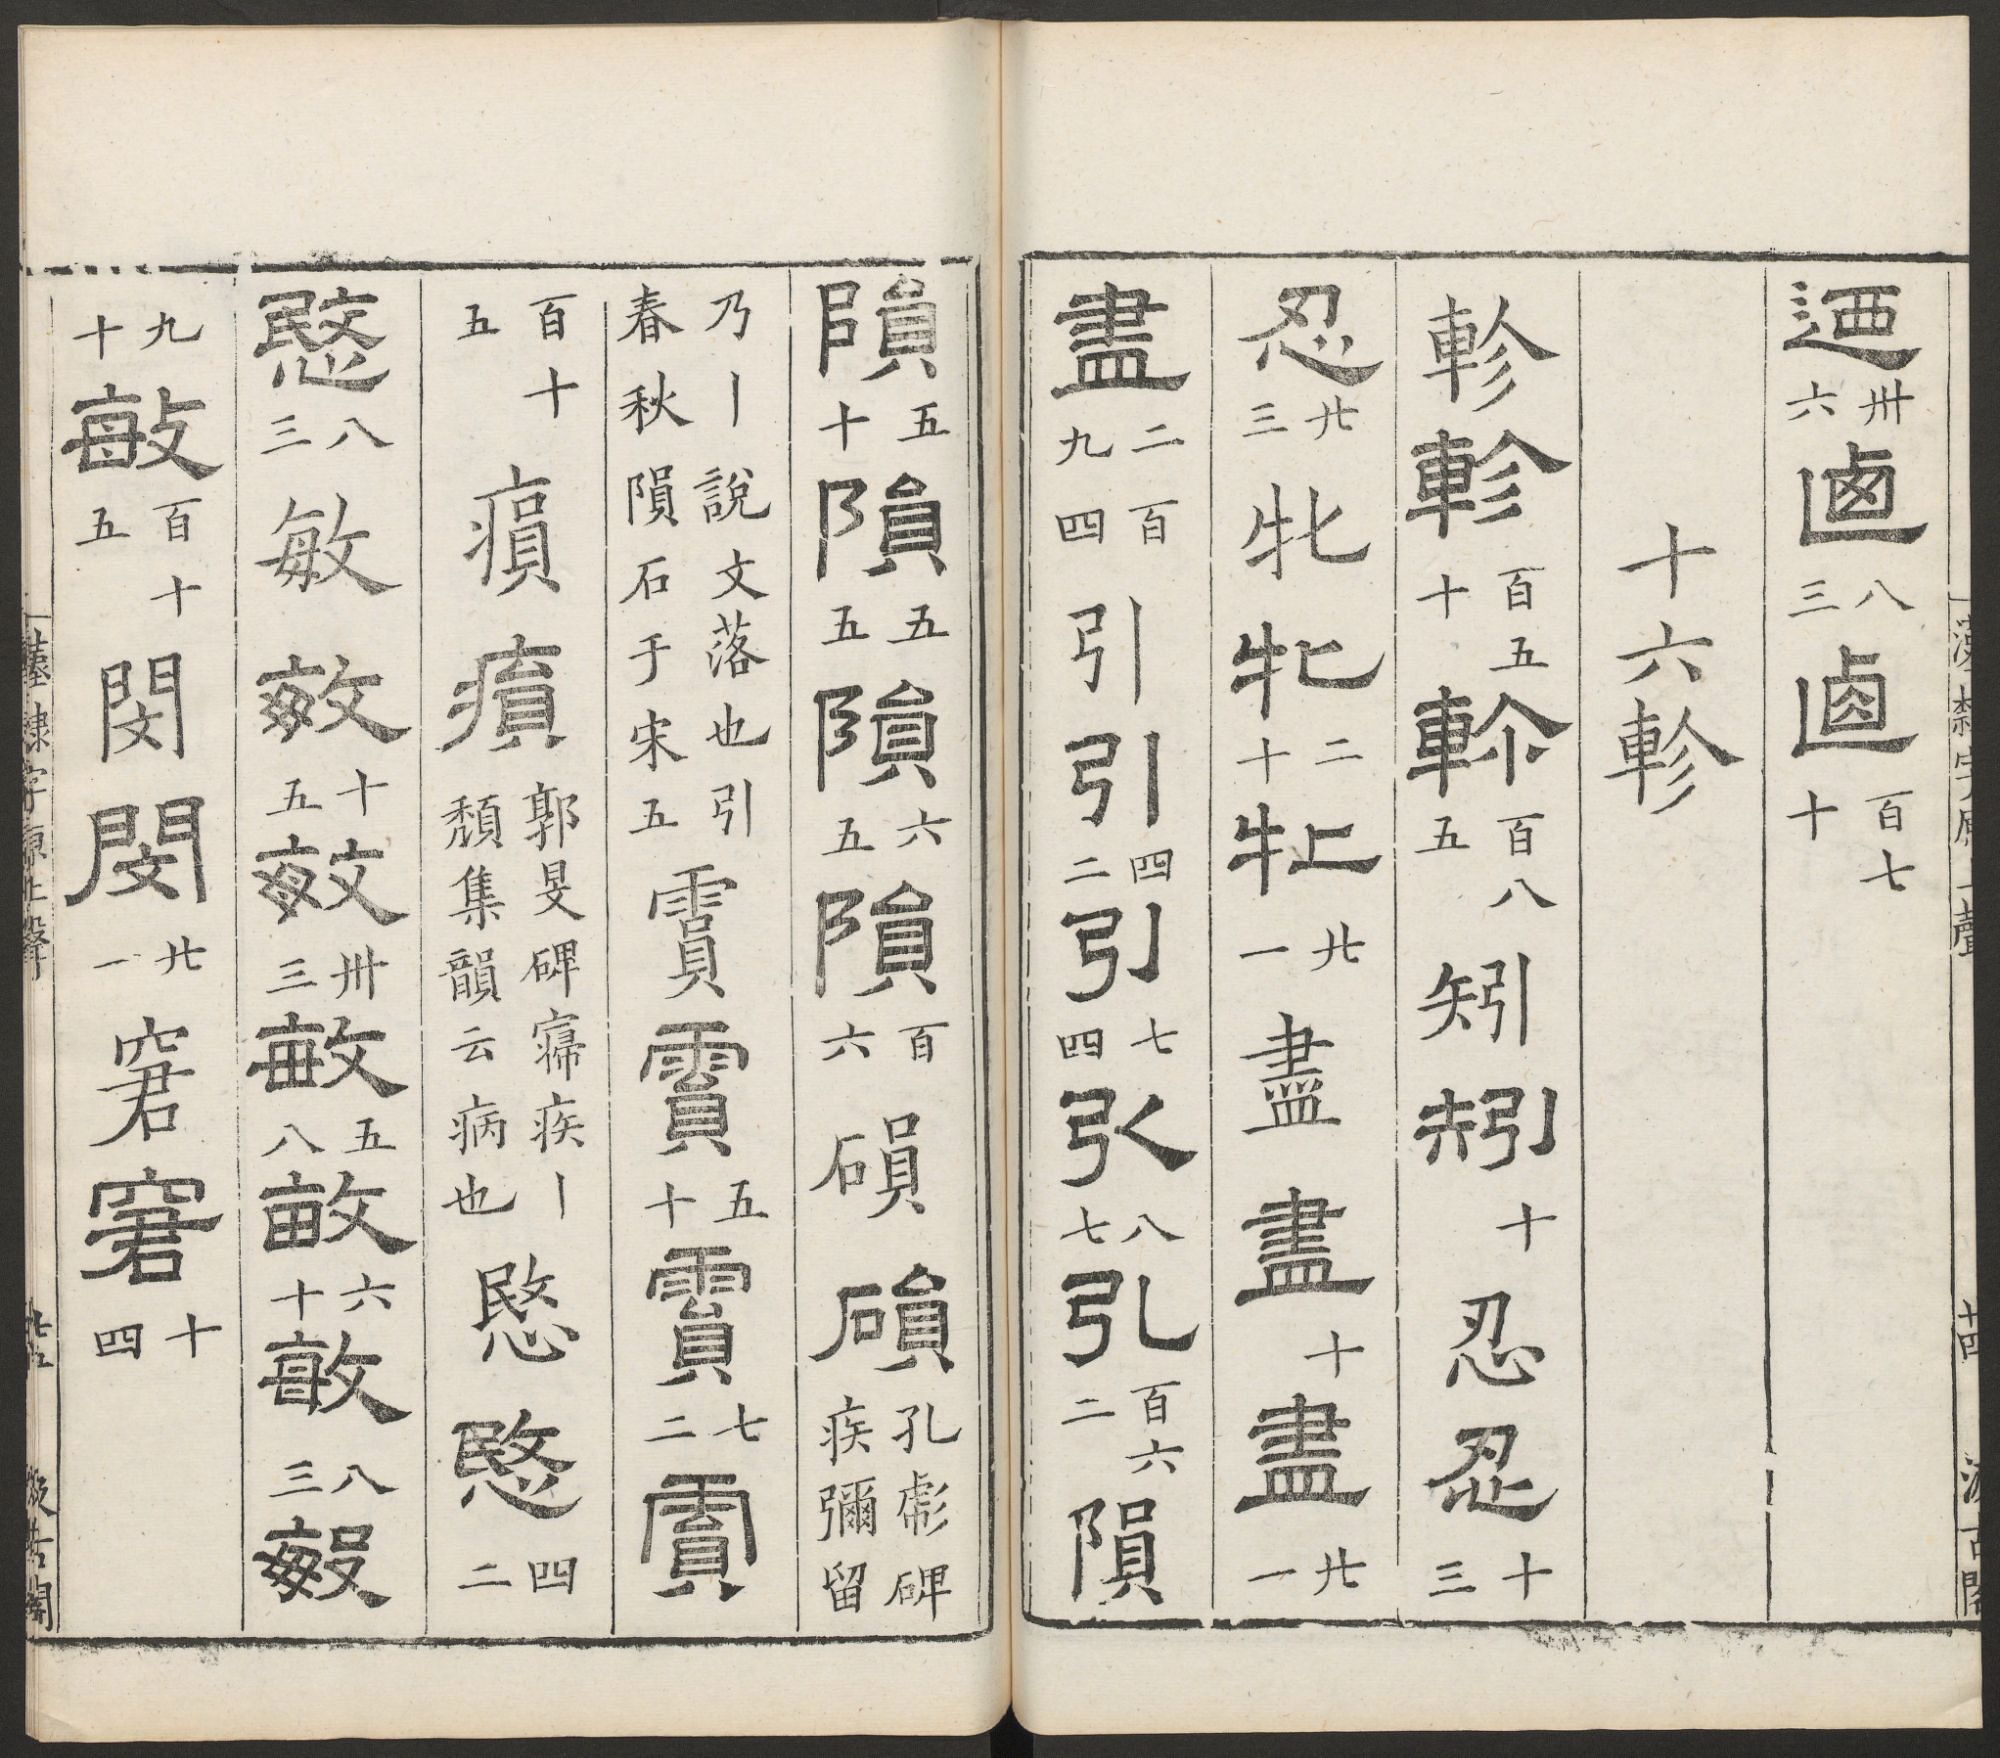 迺 卅六 𠧟 八三 𠧟 百七十
十六軫
軫 軫 百五十 軫 百八五 矧 矧 十 忍 忍 十三
忍 廿三 牝 牝 二十 牝 廿一 盡 盡 十 盡 廿一
盡 二百九四 引 引 四二 引 七四 引 八七 引 百六二 隕
隕 五十 隕 五五 隕 六五 隕 百六 磒 磒 孔彪碑疾彌留
乃丨說文落也引春秋隕石于宋五 霣 霣 五十 霣 七二 霣
百十五 㾓 㾓 郭旻碑寢疾丨頹集韻云病也 愍 愍 四二
愍 八三 敏 敏 十五 敏 卅三 敏 五八 敏 六十 敏 八三 敏
九十 敏 百十五 閔 閔 廿一 窘 窘 十四
漢隸字原上聲 十四 汲古閣
漢隸字原上聲 十五 汲古閣